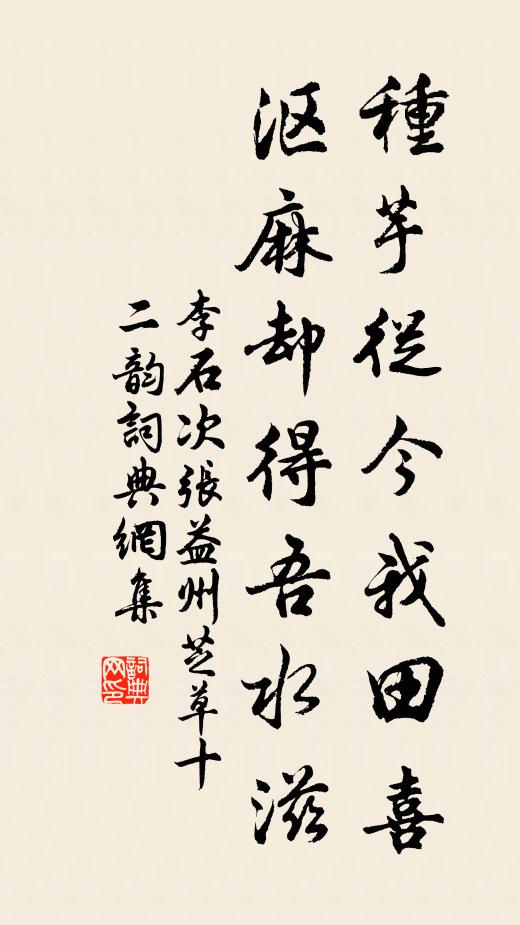 種芋從今我田喜
漚麻却得吾水滋
李石次張益州芝草十
二韵詞典網集
詞典
网印